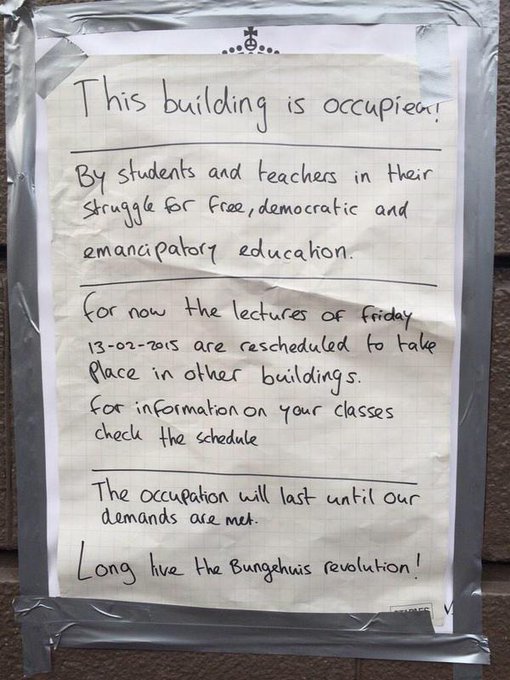 This building is occupied!
By students and teachers in their
struggle for free, democratic and
emancipatory education.
for now the lectures of friday
13-02-2015 are rescheduled to take
place in other buildings.
for information on your classes
check the schedule
The occupation will last until our
demands are met.
Long live the Bungehuis revolution!